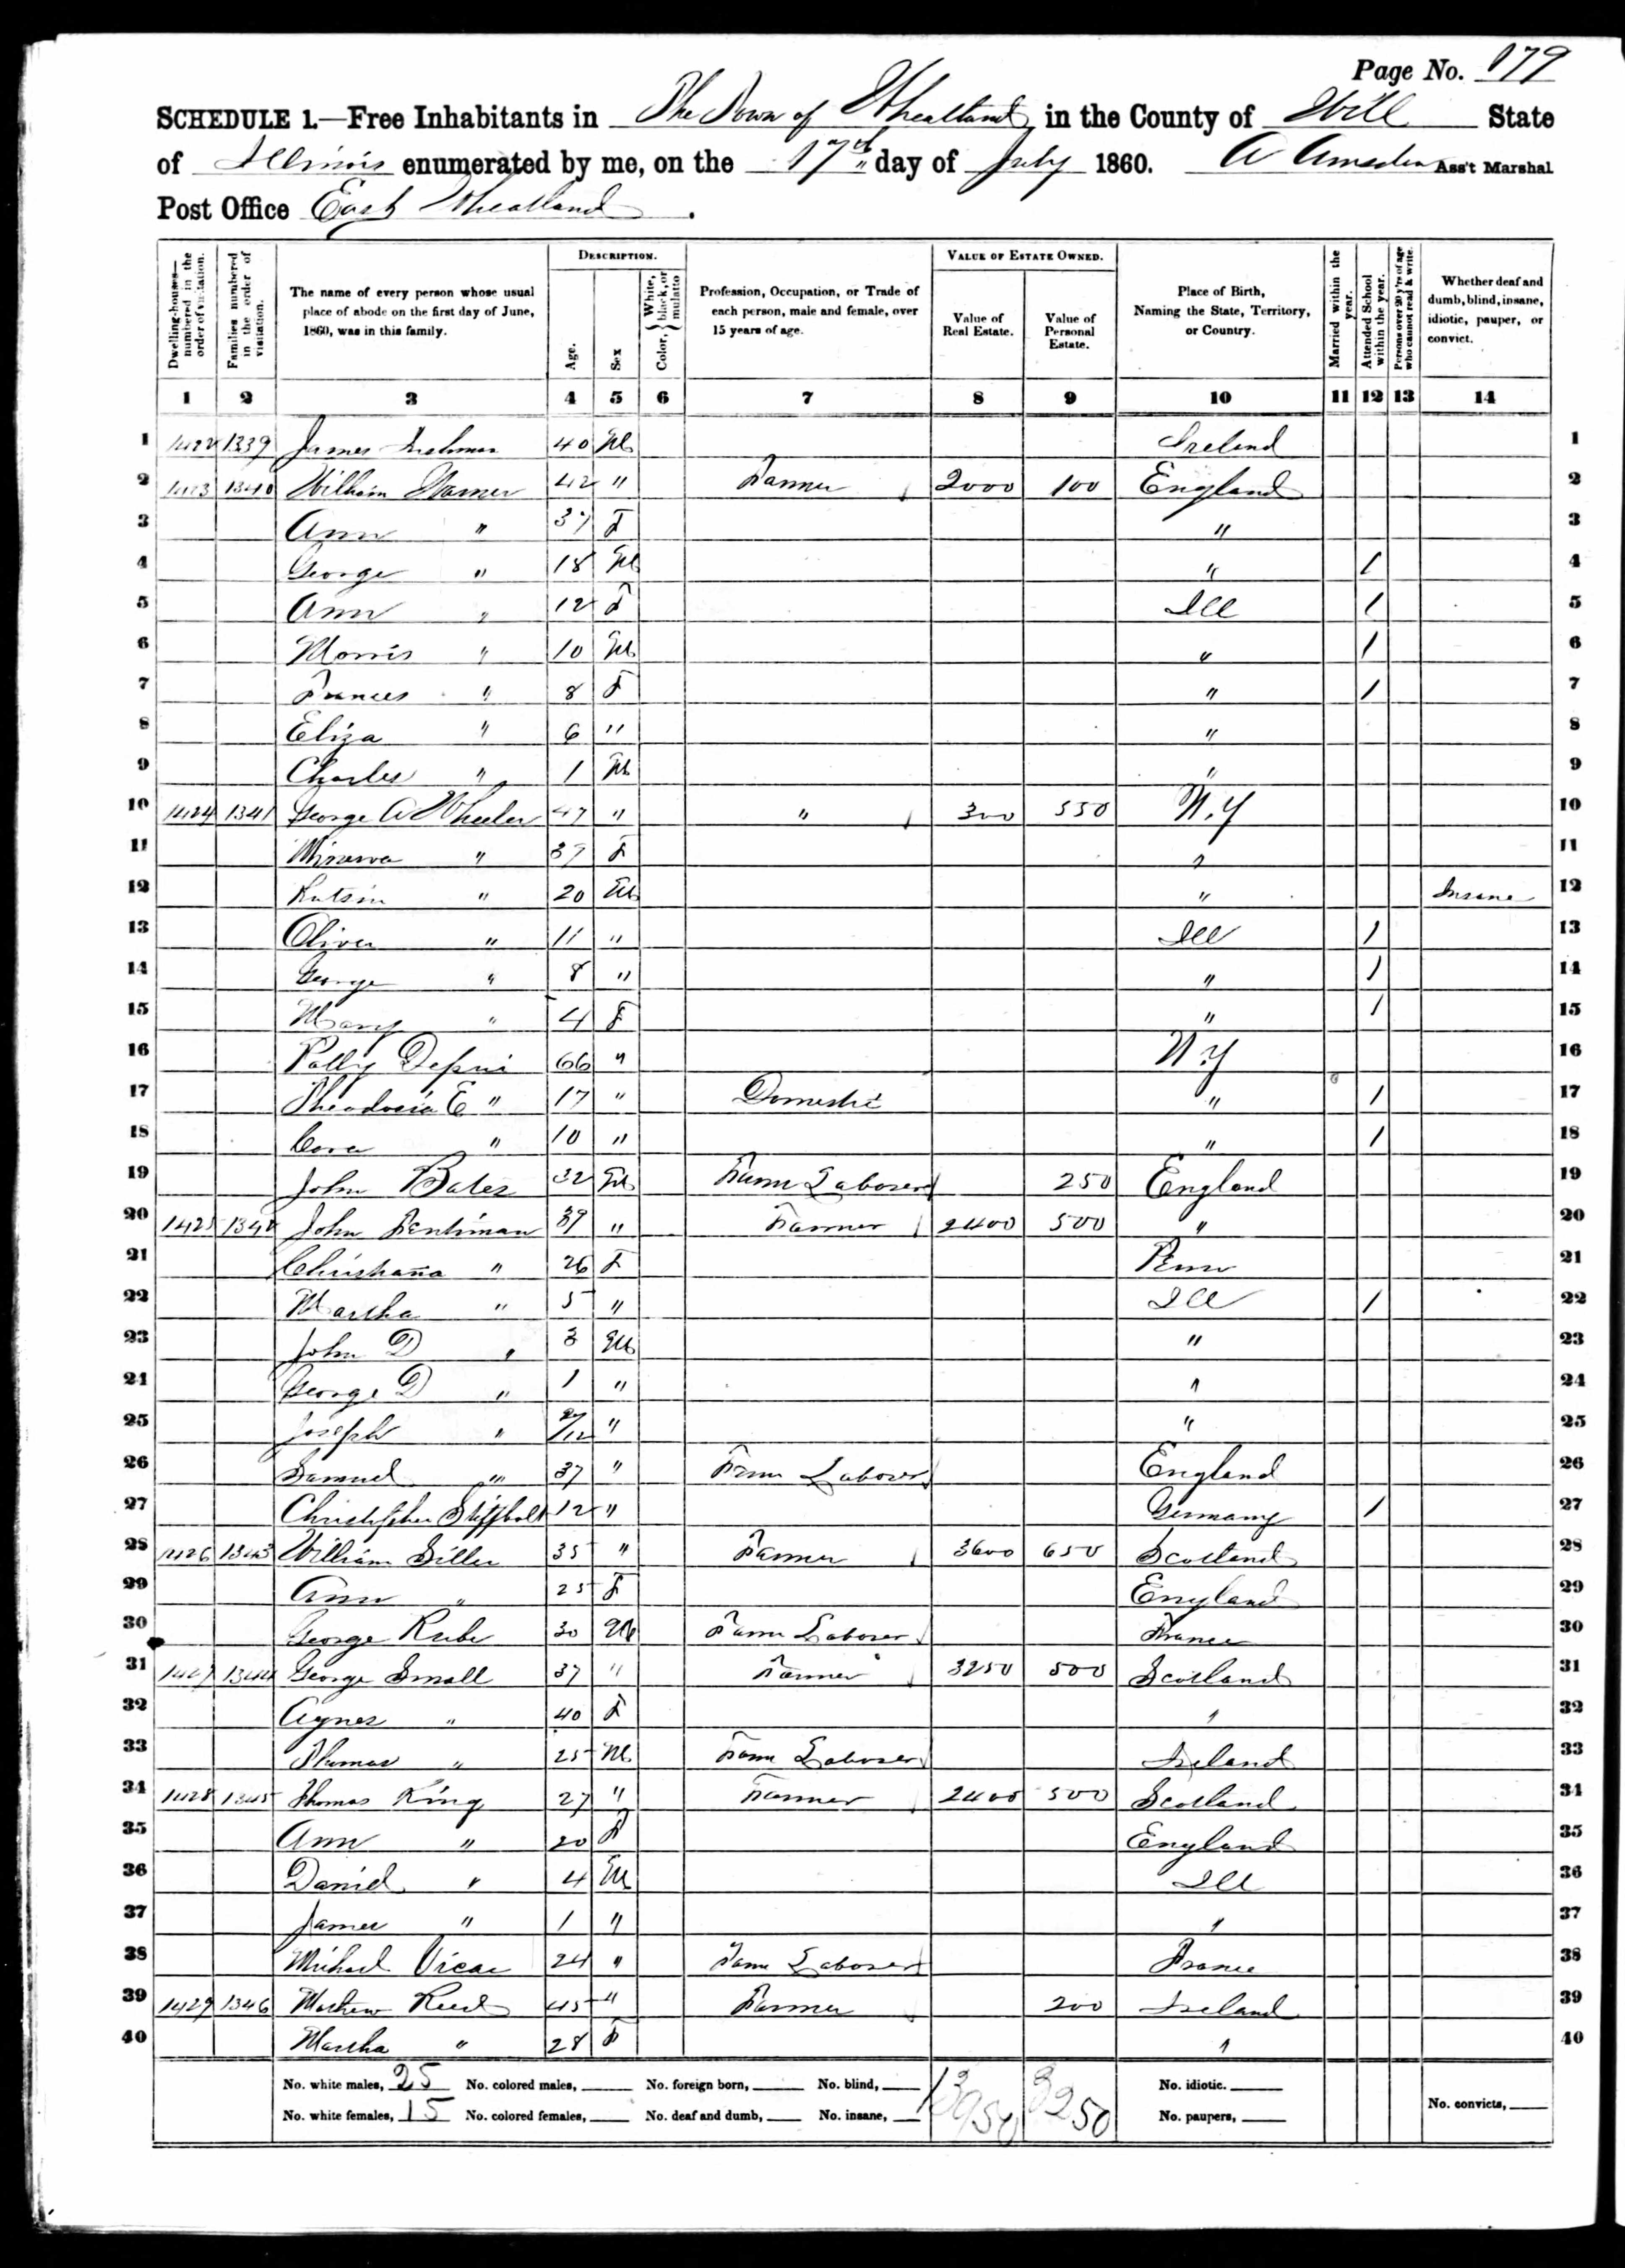 Page No. 179
SCHEDULE 1.—Free Inhabitants in The Town of Wheatland in the County of Will State
of Illinois enumerated by me, on the 17th day of July 1860. A Amsden Ass't Marshal
Post Office East Wheatland.
Dwelling-houses—numbered in the order of visitation.
Families numbered in the order of visitation.
The name of every person whose usual place of abode on the first day of June, 1860, was in this family.
DESCRIPTION.
Age.
Sex
Color, { White, black, or mulatto
Profession, Occupation, or Trade of each person, male and female, over 15 years of age.
VALUE OF ESTATE OWNED.
Value of Real Estate.
Value of Personal Estate.
Place of Birth, Naming the State, Territory, or Country.
Married within the year.
Attended School within the year.
Persons over 20 y'rs of age who cannot read & write.
Whether deaf and dumb, blind, insane, idiotic, pauper, or convict.
1 2 3 4 5 6 7 8 9 10 11 12 13 14
1 1422 1339 James 40 M Ireland 1
2 1423 1340 William 42 " Farmer 2000 100 England 2
3 Ann " 37 F " 3
4 George " 18 M " / 4
5 Ann " 12 F Ill / 5
6 Morris " 10 M " / 6
7 Frances " 8 F " / 7
8 Eliza " 6 " " 8
9 Charles " 1 M " 9
10 1424 1341 George A Wheeler 47 " " 300 550 N.Y 10
11 Minerva " 37 F " 11
12 " 20 M " Insane 12
13 Oliver " 11 " Ill / 13
14 George " 8 " " / 14
15 Mary " 4 F " / 15
16 Polly Depui 66 " N.Y 16
17 Theodosia E " 17 " Domestic " / 17
18 Cora " 10 " " / 18
19 John Bates 32 M Farm Laborer 250 England 19
20 1425 1342 John Pentiman 39 " Farmer 2400 500 " 20
21 Christiana " 26 F Penn 21
22 Martha " 5 " Ill / 22
23 John D " 3 M " 23
24 George D " 1 " " 24
25 Joseph " /12 " " 25
26 Samuel " 37 " Farm Laborer England 26
27 Christopher 12 " Germany / 27
28 1426 1343 William Siller 35 " Farmer 3600 650 Scotland 28
29 Ann " 25 F England 29
30 George Rube 30 M Farm Laborer France 30
31 1427 1344 George Small 37 " Farmer 3250 500 Scotland 31
32 Agnes " 40 F " 32
33 Thomas " 25 M Farm Laborer Ireland 33
34 1428 1345 Thomas King 27 " Farmer 2400 500 Scotland 34
35 Ann " 20 F England 35
36 Daniel " 4 M Ill 36
37 James " 1 " " 37
38 Michael Vicar 24 " Farm Laborer France 38
39 1429 1346 Mathew Reed 45 " Farmer 200 Ireland 39
40 Martha " 28 F " 40
No. white males, 25 No. colored males, No. foreign born, No. blind, 13950 3250 No. idiotic.
No. white females, 15 No. colored females, No. deaf and dumb, No. insane, No. paupers, No. convicts,